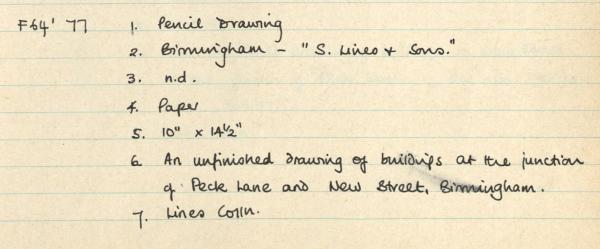 F64' 77 1. Pencil Drawing
2. Birmingham - "S. Lines & Sons."
3. n.d.
4. Paper
5. 10" x 14½"
6. An unfinished drawing of buildings at the junction
of Peck Lane and New Street, Birmingham.
7. Lines Colln.